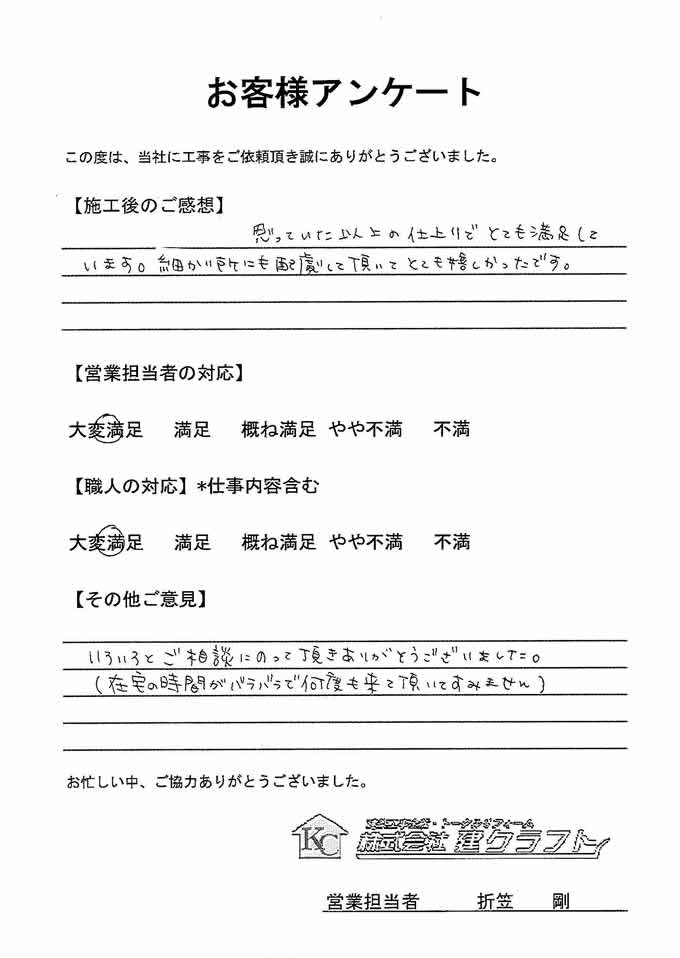 お客様アンケート
この度は、当社に工事をご依頼頂き誠にありがとうございました。
【施工後のご感想】
思っていた以上の仕上りでとても満足して
います。細かい所にも配慮して頂いてとても嬉しかったです。
【営業担当者の対応】
大変満足 満足 概ね満足 やや不満 不満
【職人の対応】*仕事内容含む
大変満足 満足 概ね満足 やや不満 不満
【その他ご意見】
いろいろとご相談にのって頂きありがとうございました。
(在宅の時間がバラバラで何度も来て頂いてすみません)
お忙しい中、ご協力ありがとうございました。
KC
株式会社 建クラフト
営業担当者 折笠 剛